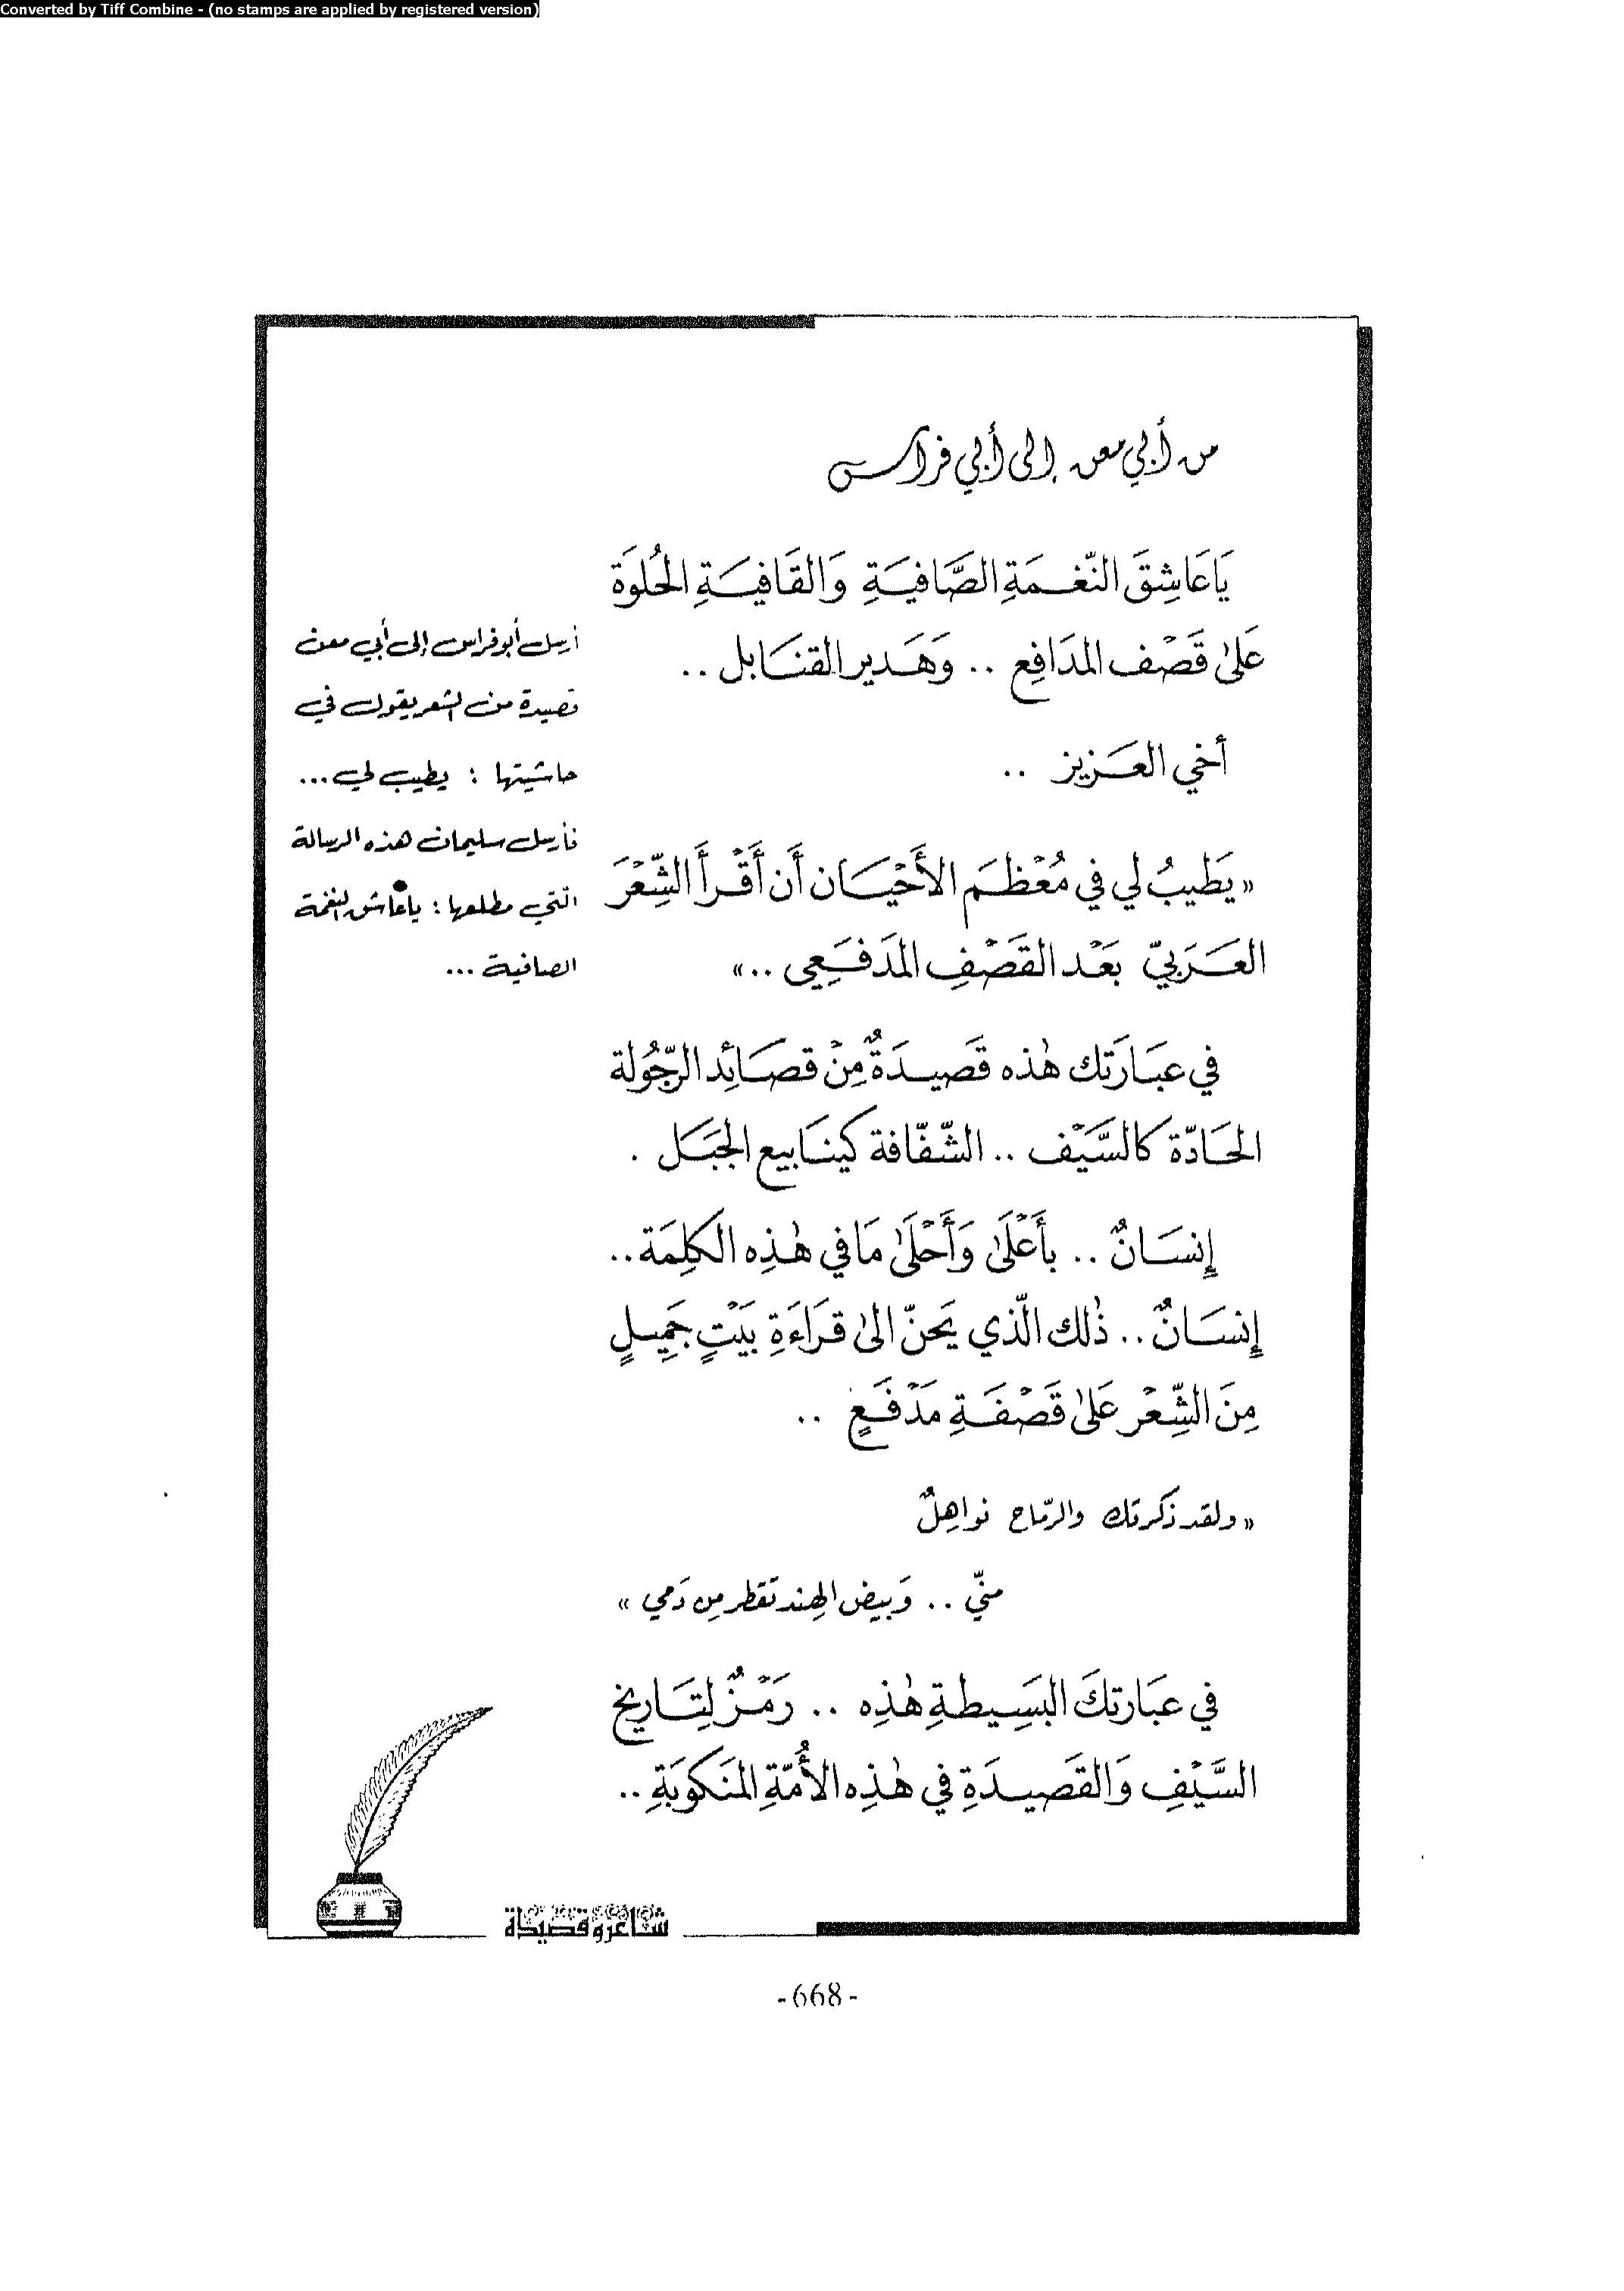 Converted by Tiff Combine - (no stamps are applied by registered version)
من أبي معن إلى أبي فراس
يَا عَاشِقَ النّغمَةِ الصَّافيَةِ وَالقَافيَةِ الحُلوَة
عَلىٰ قَصْف المدَافِع .. وَهَدير القنَابل ..
أخي العَزيز ..
«يَطيبُ لي في مُعْظمَ الأحْيَان أَن أَقْرأَ الشِّعْرَ
العَرَبيّ بَعْد القَصْفِ المدَفَعِي ..»
في عبَارَتك هٰذه قَصيدَةٌ مِنْ قصَائِد الرّجُولة
الحَادّة كالسَّيْف .. الشّفّافة كينَابيع الجَبَل .
إِنسَانٌ .. بأَعْلَىٰ وَأَحْلَىٰ مَا في هٰذِه الكلِمَة ..
إِنسَانٌ .. ذٰلك الّذي يَحنّ الىٰ قرَاءَةِ بَيْتٍ جَمِيلٍ
مِنَ الشِّعْر عَلىٰ قَصْفَةِ مَدْفَعٍ ..
«ولقد ذكرتك والرّماح نواهِلٌ
منّي .. وَبيض الهِند تَقطر مِن دَمي»
في عبَارتكَ البَسِيطةِ هٰذِه .. رَمْزٌ لِتَاريخ
السَّيْفِ وَالقَصيدَةِ في هٰذِه الأُمّةِ المنَكوبَةِ ..
أرسل أبو فراس إلى أبي معن
قصيدة من الشعر يقول في
حاشيتها : يطيب لي ...
فأرسل سليمان هذه الرسالة
التي مطلعها : يا عاشق النغمة
الصافية ...
شاعر وقصيدة
- 668 -